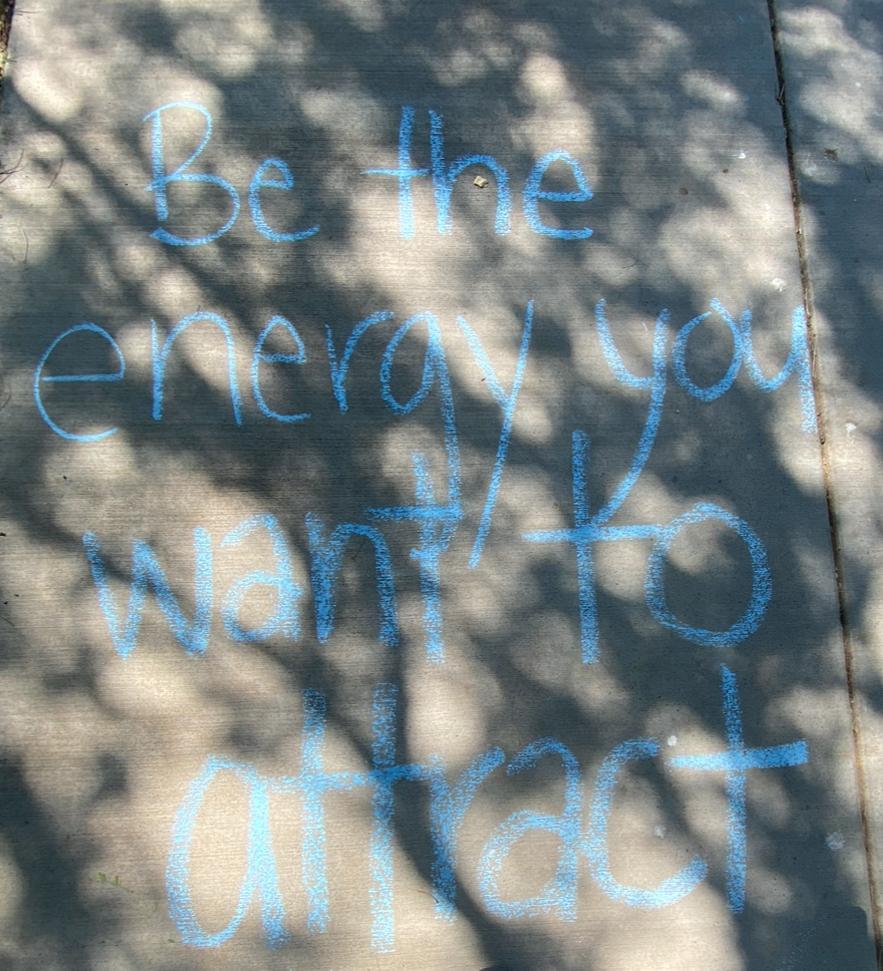 Be the
energy you
want to
attract